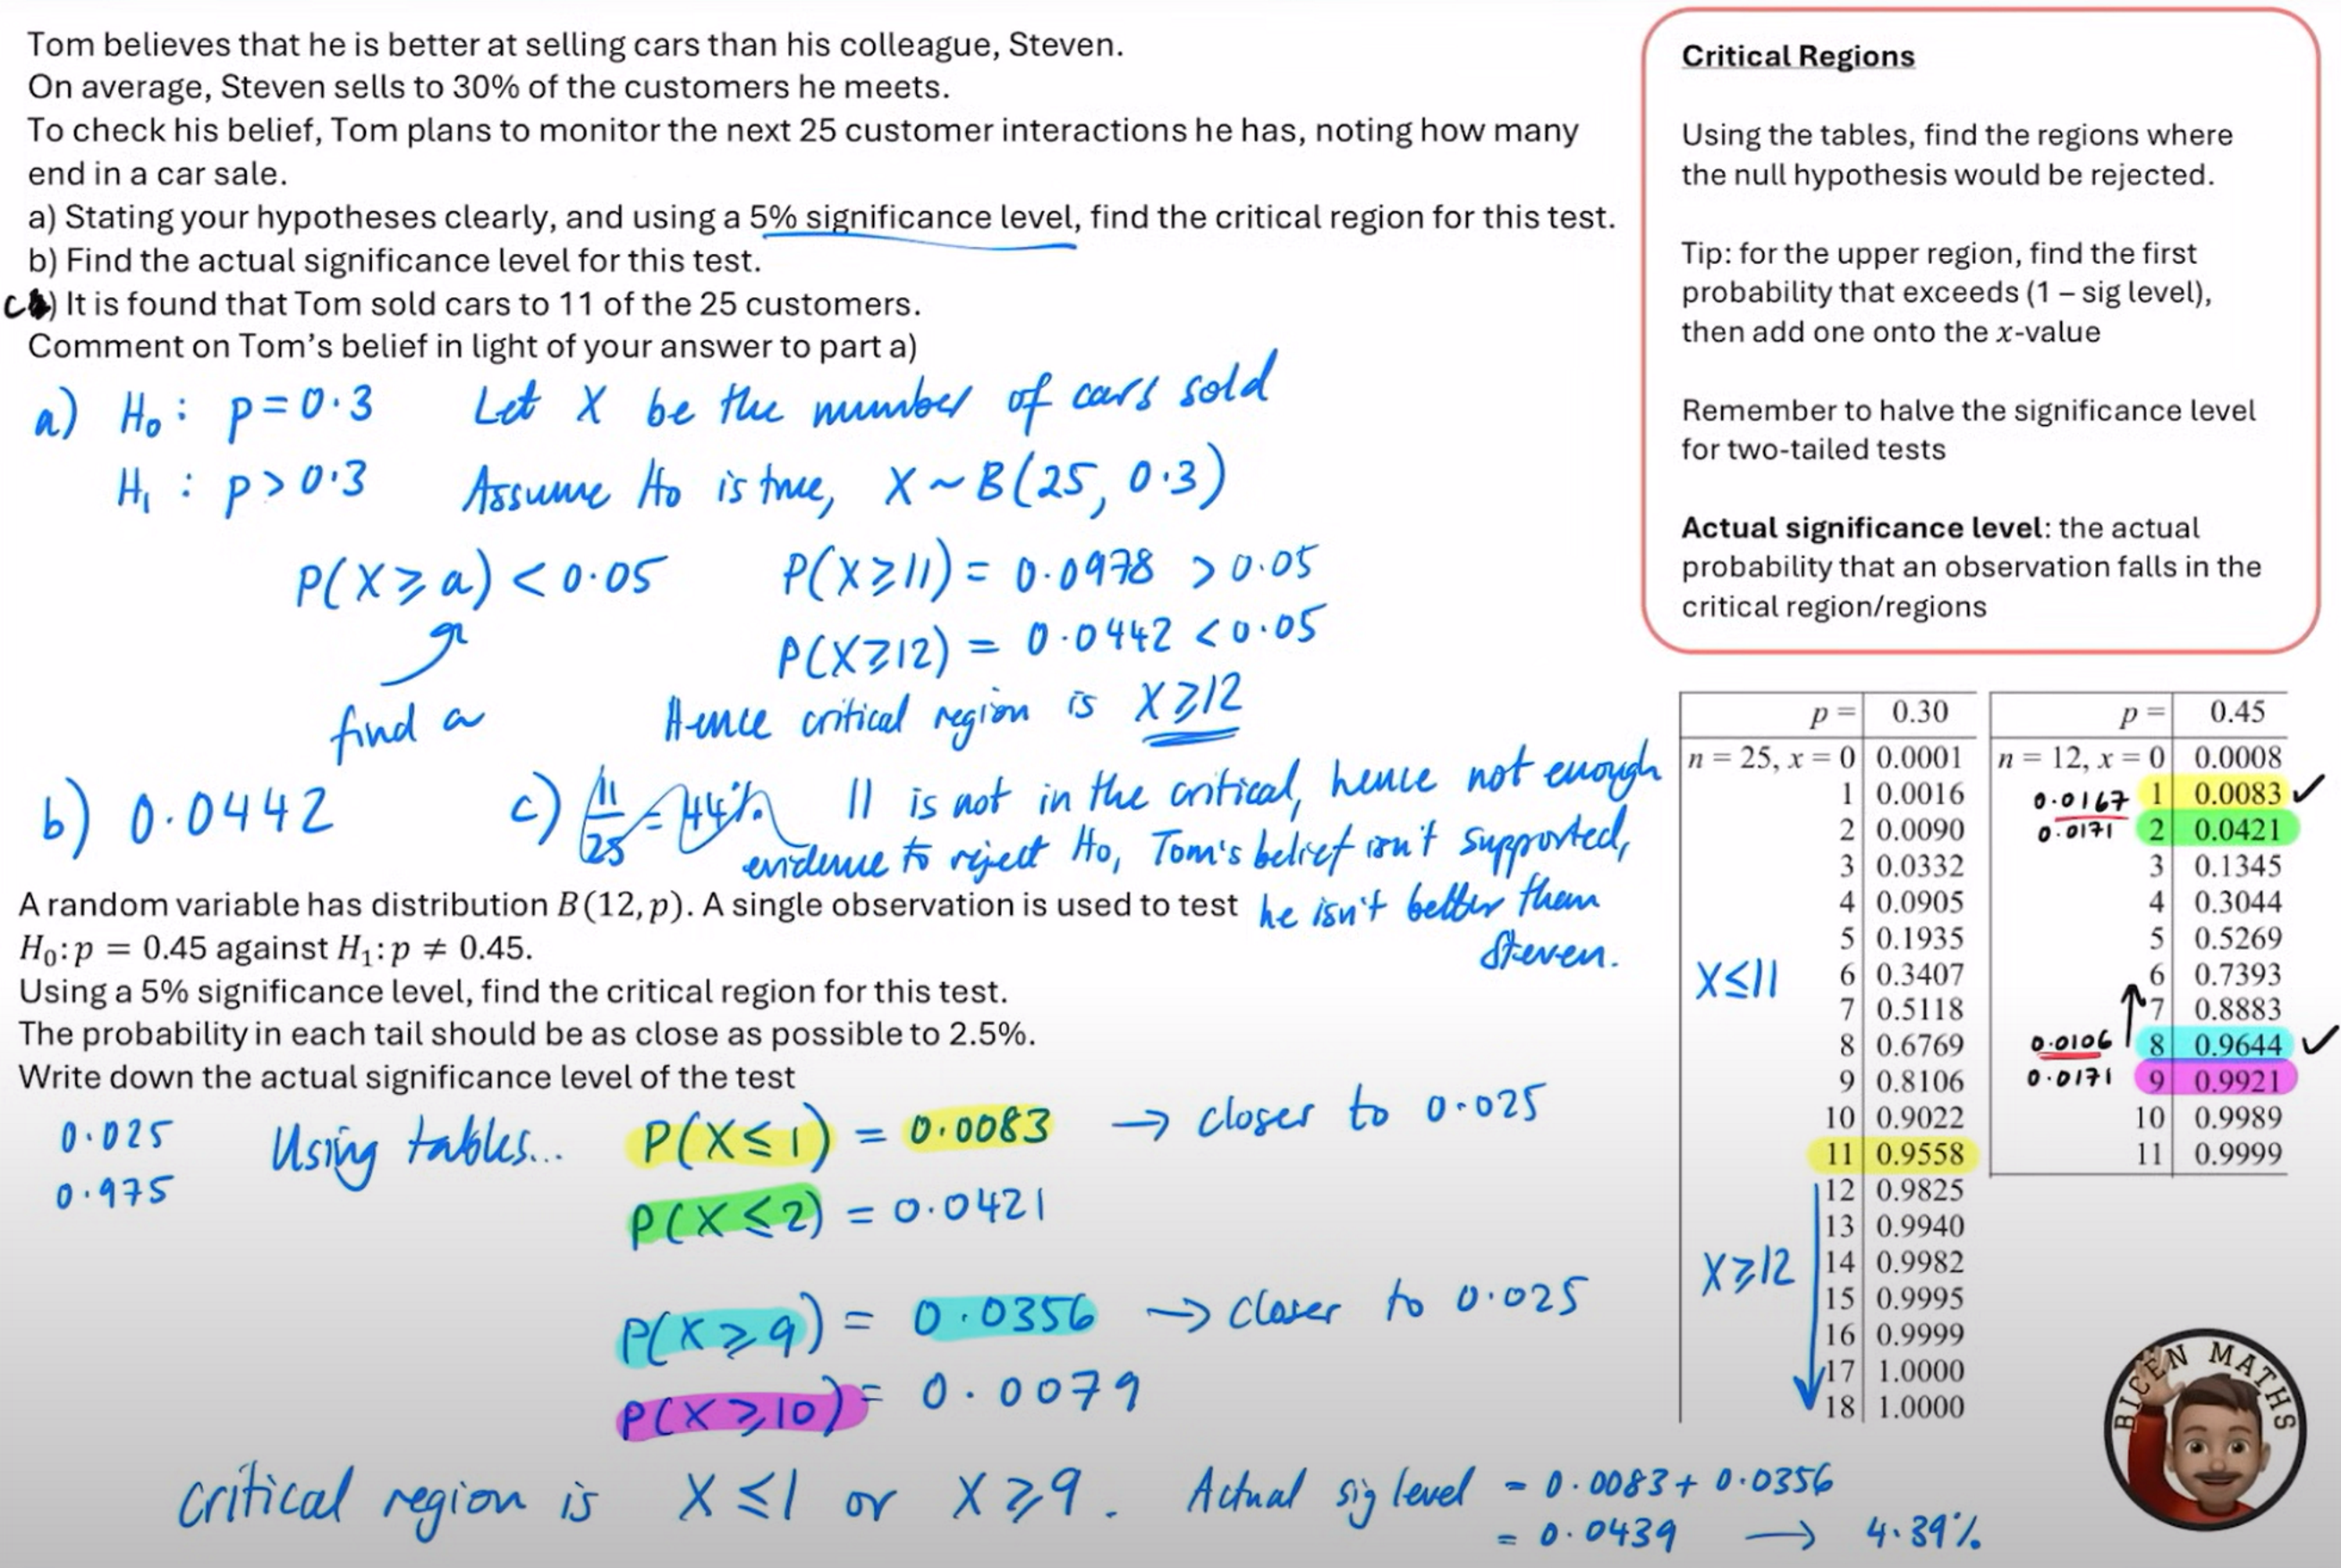 Tom believes that he is better at selling cars than his colleague, Steven.
On average, Steven sells to 30% of the customers he meets.
To check his belief, Tom plans to monitor the next 25 customer interactions he has, noting how many
end in a car sale.
a) Stating your hypotheses clearly, and using a 5% significance level, find the critical region for this test.
b) Find the actual significance level for this test.
c) It is found that Tom sold cars to 11 of the 25 customers.
Comment on Tom's belief in light of your answer to part a)
a) H₀ : p = 0.3 Let X be the number of cars sold
H₁ : p > 0.3 Assume H₀ is true, X ~ B(25, 0.3)
P(X ⩾ a) < 0.05 P(X ⩾ 11) = 0.0978 > 0.05
find a P(X ⩾ 12) = 0.0442 < 0.05
Hence critical region is X ⩾ 12
b) 0.0442 c) 11/25 = 44% 11 is not in the critical, hence not enough
evidence to reject H₀, Tom's belief isn't supported,
he isn't better than
Steven.
A random variable has distribution B(12, p). A single observation is used to test
H₀: p = 0.45 against H₁: p ≠ 0.45.
Using a 5% significance level, find the critical region for this test.
The probability in each tail should be as close as possible to 2.5%.
Write down the actual significance level of the test
0.025
0.975
Using tables... P(X ⩽ 1) = 0.0083 → closer to 0.025
P(X ⩽ 2) = 0.0421
P(X ⩾ 9) = 0.0356 → closer to 0.025
P(X ⩾ 10) = 0.0079
critical region is X ⩽ 1 or X ⩾ 9. Actual sig level = 0.0083 + 0.0356
= 0.0439 → 4.39%
Critical Regions
Using the tables, find the regions where
the null hypothesis would be rejected.
Tip: for the upper region, find the first
probability that exceeds (1 – sig level),
then add one onto the x-value
Remember to halve the significance level
for two-tailed tests
Actual significance level: the actual
probability that an observation falls in the
critical region/regions
p = 0.30
n = 25, x = 0 0.0001
1 0.0016
2 0.0090
3 0.0332
4 0.0905
5 0.1935
6 0.3407
7 0.5118
8 0.6769
9 0.8106
10 0.9022
11 0.9558
12 0.9825
13 0.9940
14 0.9982
15 0.9995
16 0.9999
17 1.0000
18 1.0000
X ⩽ 11
X ⩾ 12
p = 0.45
n = 12, x = 0 0.0008
0.0167 1 0.0083 ✓
0.0171 2 0.0421
3 0.1345
4 0.3044
5 0.5269
6 0.7393
7 0.8883
0.0106 8 0.9644 ✓
0.0171 9 0.9921
10 0.9989
11 0.9999
BICEN MATHS